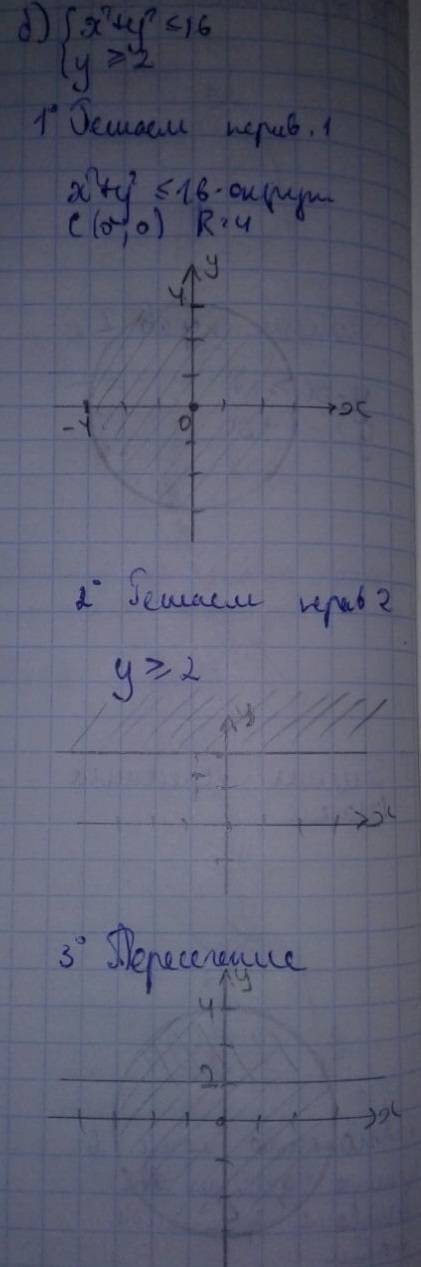 б) { x²+y² ≤ 16
{ y ≥ 2
1° Решаем нерав. 1
x²+y² ≤ 16 - окруж
C(0;0) R=4
y
4
-4 0 x
2° Решаем нерав 2
y ≥ 2
y
x
3° Пересечение
y
4
2
0 x